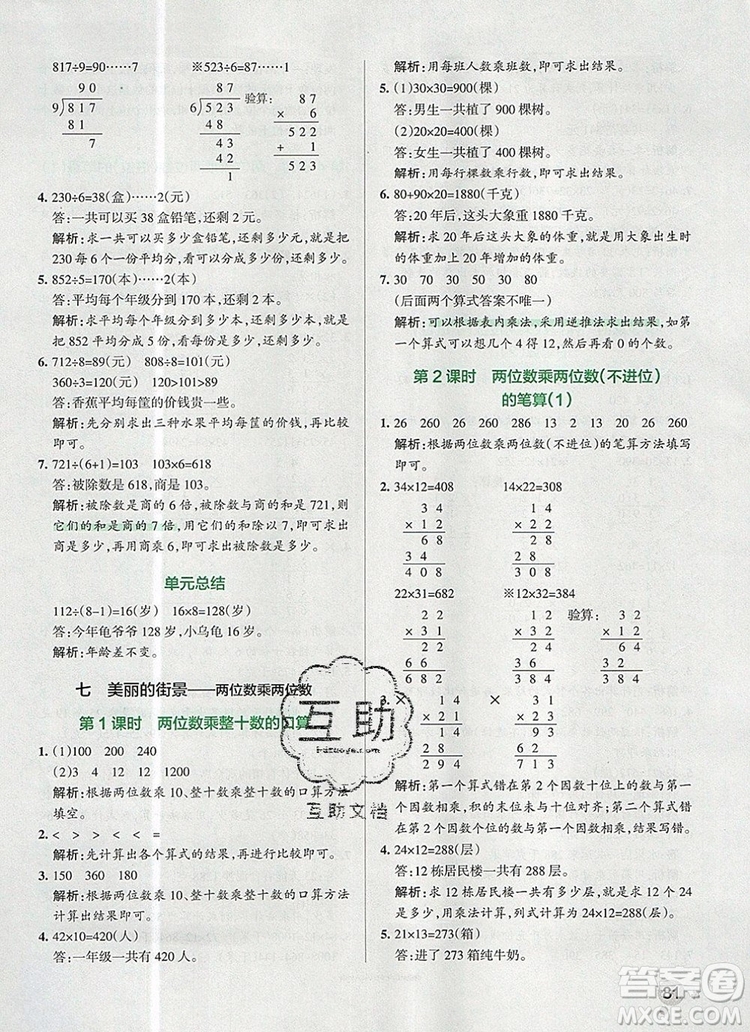 817÷9=90……7  ※523÷6=87……1
90
9)817
81
7
87
6)523
48
43
42
1
验算：
87
×6
522
+1
523
4. 230÷6=38(盒)……2(元)
答：一共可以买 38 盒铅笔，还剩 2 元。
解析：求一共可以买多少盒铅笔，还剩多少元，就是把
230 每 6 个一份进行平均分，看可以分成多少份，还剩
多少即可。
5. 852÷5=170(本)……2(本)
答：平均每个年级分到 170 本，还剩 2 本。
解析：求平均每个年级分到多少本，还剩多少本，就是
将 852 平均分成 5 份，看每份是多少，还剩多少即可。
6. 712÷8=89(元)  808÷8=101(元)
360÷3=120(元)  120>101>89
答：香蕉平均每筐的价钱贵一些。
解析：先分别求出三种水果平均每筐的价钱，再进行比
较即可。
7. 721÷(6+1)=103  103×6=618
答：被除数是 618，商是 103。
解析：被除数是商的 6 倍，被除数与商的和是 721，则
它们的和是商的 7 倍，用它们的和除以 7，即可求出
商是多少，再用商乘 6，即可求出被除数是多少。
单元总结
112÷(8-1)=16(岁)  16×8=128(岁)
答：今年龟爷爷 128 岁，小乌龟 16 岁。
解析：年龄差不变。
七  美丽的街景——两位数乘两位数
第 1 课时  两位数乘整十数的口算
1. (1)100  200  240
(2)3  4  12  1200
解析：根据两位数乘 10、整十数乘整十数的口算方法
填空。
2. <  >  >  <  <  =
解析：先计算出各个算式的结果，再进行比较即可。
3. 150  360  180
解析：根据两位数乘 10、整十数乘整十数的口算方法
计算出结果即可。
4. 42×10=420(人)
答：一年级一共有 420 人。
解析：用每班人数乘班数，即可求出结果。
5. (1)30×30=900(棵)
答：男生一共植了 900 棵树。
(2)20×20=400(棵)
答：女生一共植了 400 棵树。
解析：用每行棵数乘行数，即可求出结果。
6. 80+90×20=1880(千克)
答：20 年后，这头大象重 1880 千克。
解析：求 20 年后这头大象的体重，就用大象出生时
的体重加上 20 年增加的体重。
7. 30  70  80  50
(后面两个算式答案不唯一)
解析：可以根据表内乘法，采用逆推法求出结果，如第
一个算式可以想几个 4 得 12，再加上适当的 0 个数。
第 2 课时  两位数乘两位数(不进位)
的笔算(1)
1. 26  260  26  260  286  13  2  13  20  26  260
解析：根据两位数乘两位数(不进位)的笔算方法填写
即可。
2. 34×12=408  14×22=308
34
×12
68
34
408
14
×22
28
28
308
22×31=682  ※12×32=384
22
×31
22
66
682
12
×32
24
36
384
验算：
32
×12
64
32
384
3.
×12
264
×21
13
26
273
×23
33
22
253
解析：第一个算式错在第 2 个因数十位上的数与第 1
个因数相乘，积的末位未与十位对齐；第二个算式错
在第 2 个因数十位上的数未与第 1 个因数相乘。
4. 24×12=288(层)
答：12 栋居民楼一共有 288 层。
解析：求 12 栋居民楼一共有多少层，就是求 12 个 24
是多少，用乘法进行计算，列式计算为 24×12=288。
5. 21×13=273(箱)
答：进了 273 箱纯牛奶。
81
互助
互助文档
答案圈
MXQE.COM